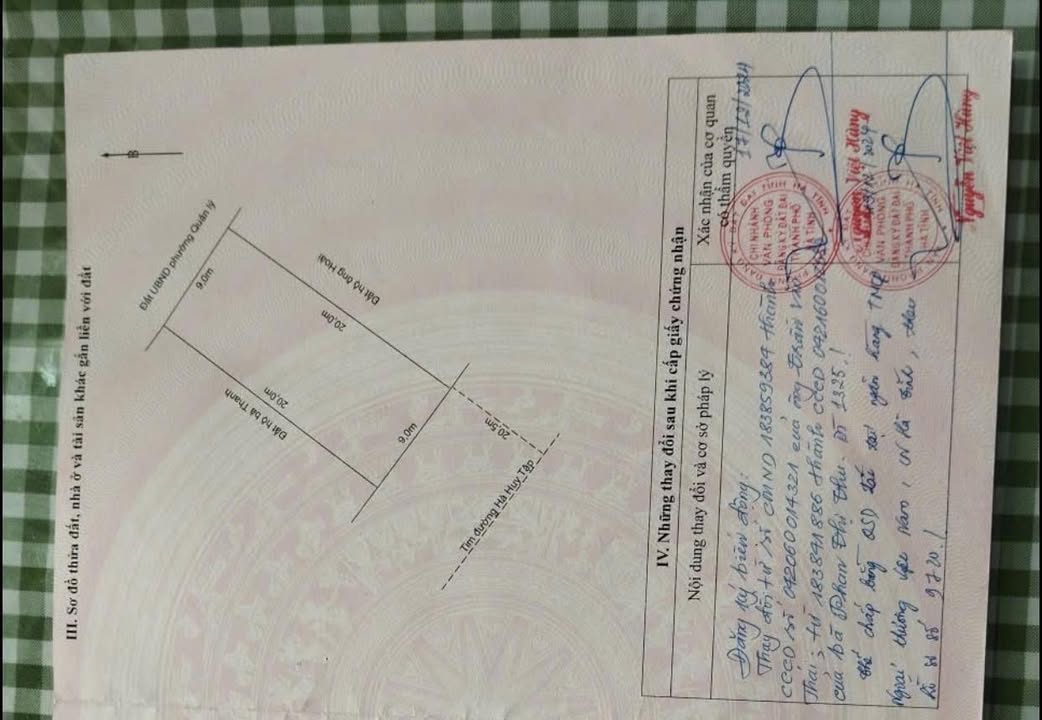 III. Sơ đồ thửa đất, nhà ở và tài sản khác gắn liền với đất
B
Đất UBND phường Quản lý
9,0m
Đất hộ ông Hoài
20,0m
20,0m
Đất hộ bà Thanh
9,0m
20,5m
Tim đường Hà Huy Tập
IV. Những thay đổi sau khi cấp giấy chứng nhận
Nội dung thay đổi và cơ sở pháp lý
Xác nhận của cơ quan
có thẩm quyền
Đăng ký biến động:
17/12/2024
Thay đổi từ số CMND 183859384 thành
CCCD số 042060014321 của ông Trần
Thái; từ 183841886 thành CCCD
của bà Phan Thị Thu. 1325.!
Thế chấp bằng QSD đất tại ngân hàng TMCP
Ngoại thương Việt Nam, CN Hà Tĩnh, theo
hồ sơ số 9720.!
CHI NHÁNH
VĂN PHÒNG
ĐĂNG KÝ ĐẤT ĐAI
THÀNH PHỐ
HÀ TĨNH
Nguyễn Việt Hùng
CHI NHÁNH
VĂN PHÒNG
ĐĂNG KÝ ĐẤT ĐAI
THÀNH PHỐ
HÀ TĨNH
Nguyễn Việt Hùng